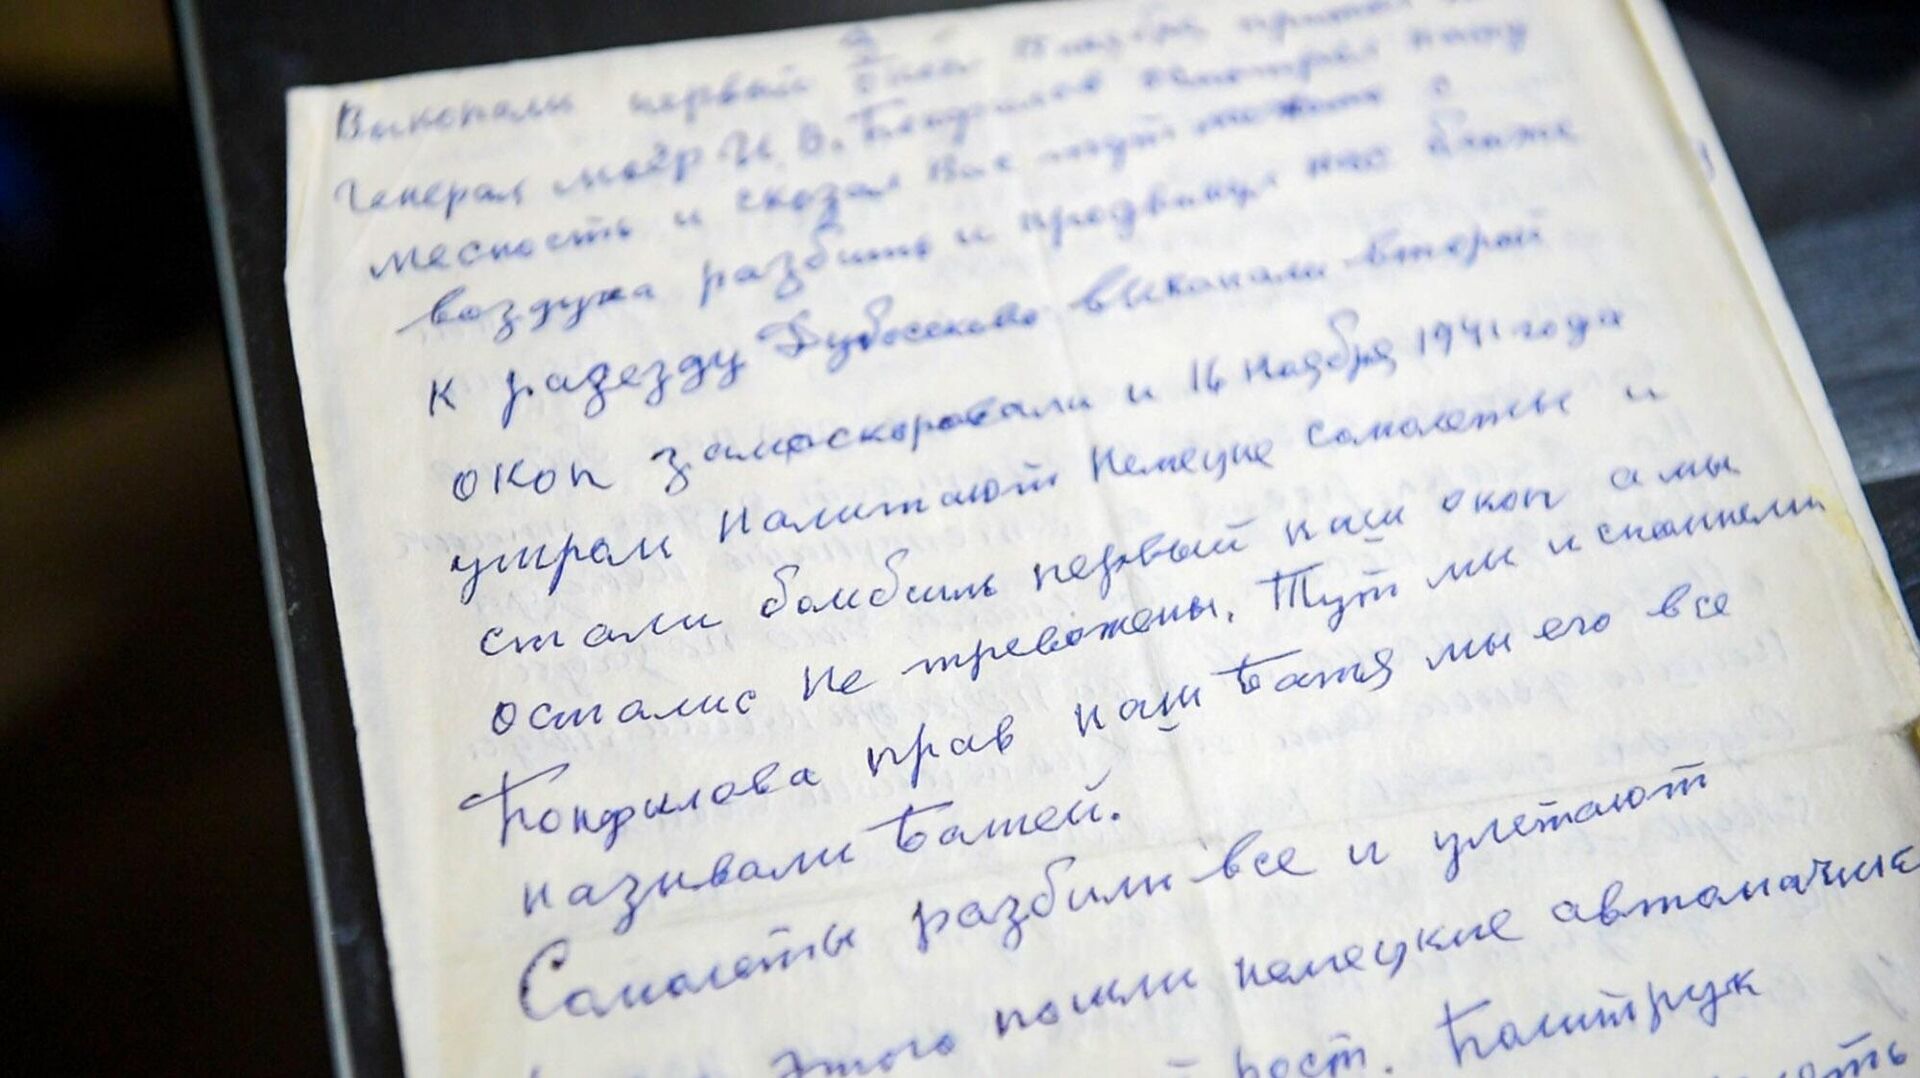 Выкопали первый
Генерал маёр И. В. Панфилов осмотрел нашу
месность и сказал Вас могут можит с
воздуха разбить и продвинул нас ближе
к разезду Дубосеково выкапали второй
окоп замоскоровали и 16 ноября 1941 года
утром налитают немецие самолеты и
стали бомбить первый наш окоп а мы
осталис не тревожены. Тут мы и спомнели
Понфилова прав наш батя мы его все
называли батей.
Самолеты разбили все и улетают
этого пошли немецкие автоматчик
рост. Политрук